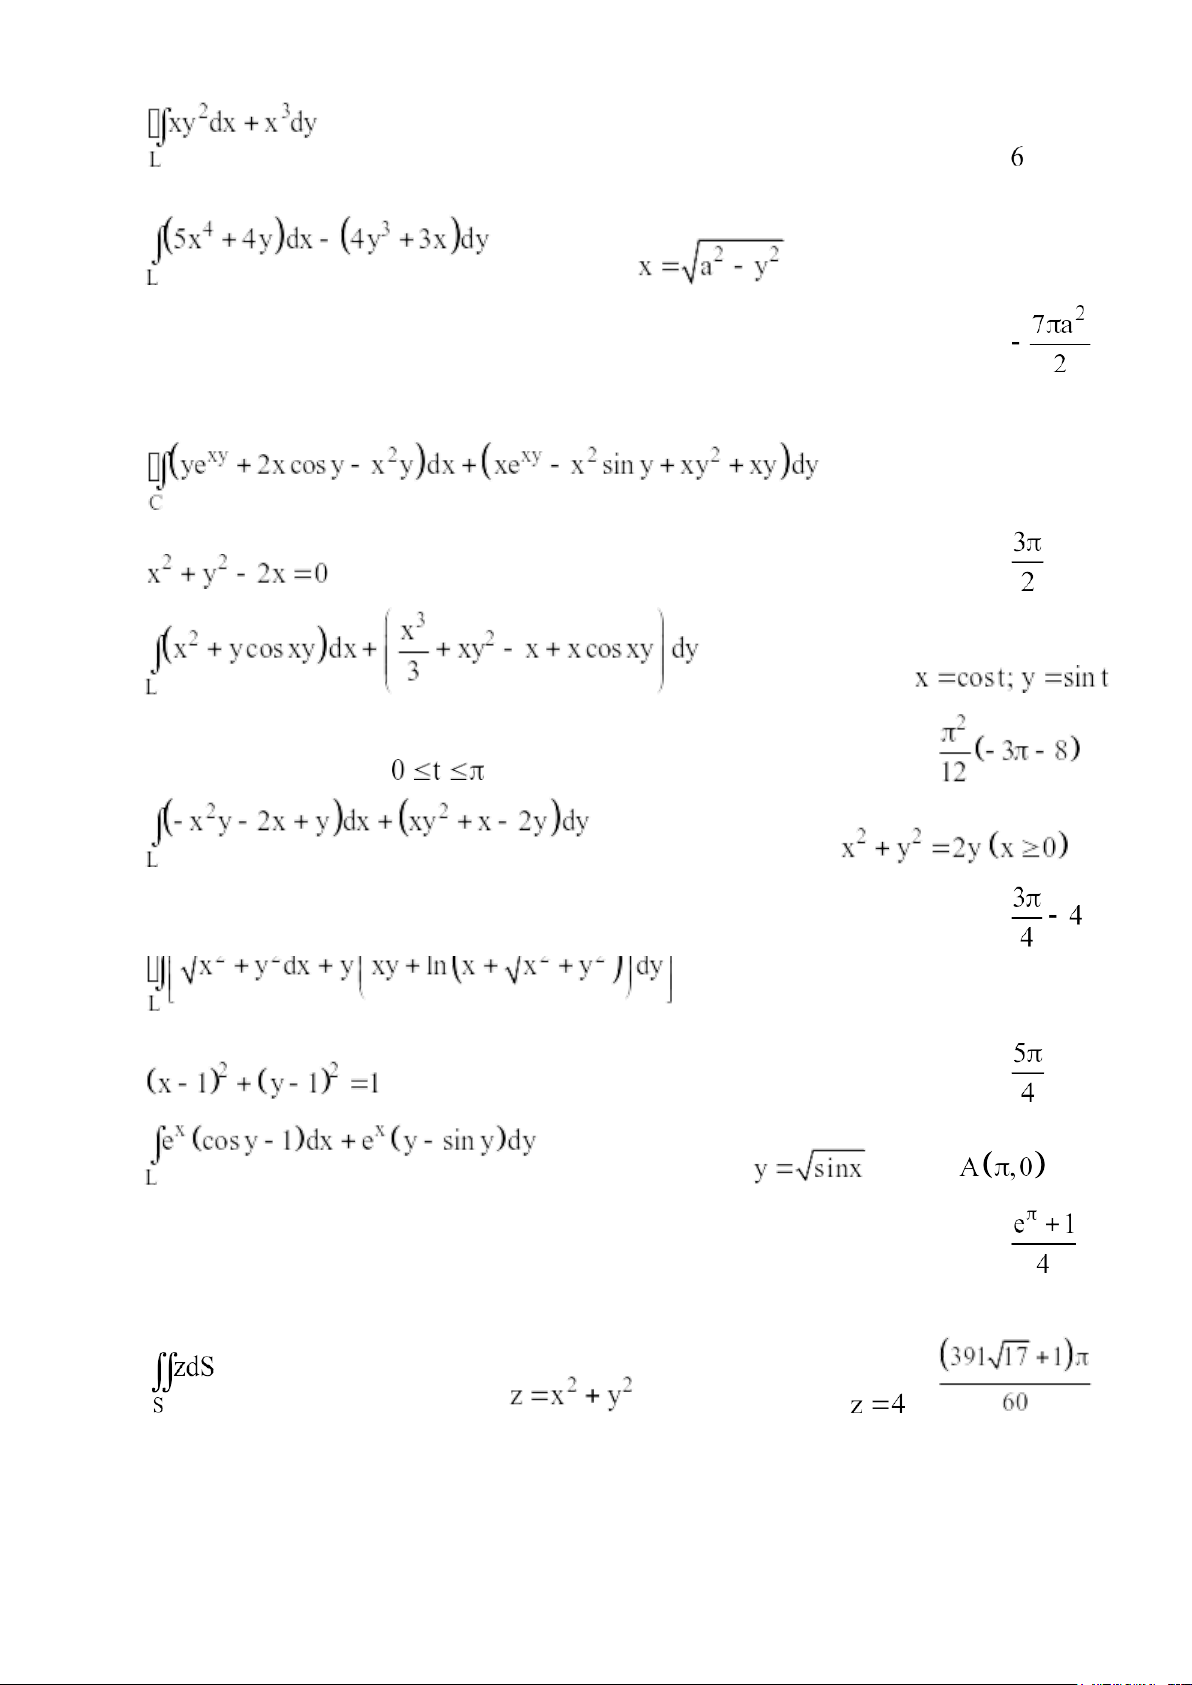 ∮xy²dx + x³dy
L
6
∫(5x⁴ + 4y)dx - (4y³ + 3x)dy
L
x = √(a² - y²)
- 7πa²/2
∮(yeˣʸ + 2x cos y - x²y)dx + (xeˣʸ - x² sin y + xy² + xy)dy
C
x² + y² - 2x = 0
3π/2
∫(x² + y cos xy)dx + (x³/3 + xy² - x + x cos xy) dy
L
x = cos t; y = sin t
0 ≤ t ≤ π
π²/12 (- 3π - 8)
∫(- x²y - 2x + y)dx + (xy² + x - 2y)dy
L
x² + y² = 2y (x ≥ 0)
3π/4 - 4
∮[√(x² + y²)dx + y(xy + ln(x + √(x² + y²)))dy]
L
(x - 1)² + (y - 1)² = 1
5π/4
∫eˣ(cos y - 1)dx + eˣ(y - sin y)dy
L
y = √sinx
A(π,0)
(e^π + 1)/4
∬zdS
S
z = x² + y²
z = 4
(391√17 + 1)π/60